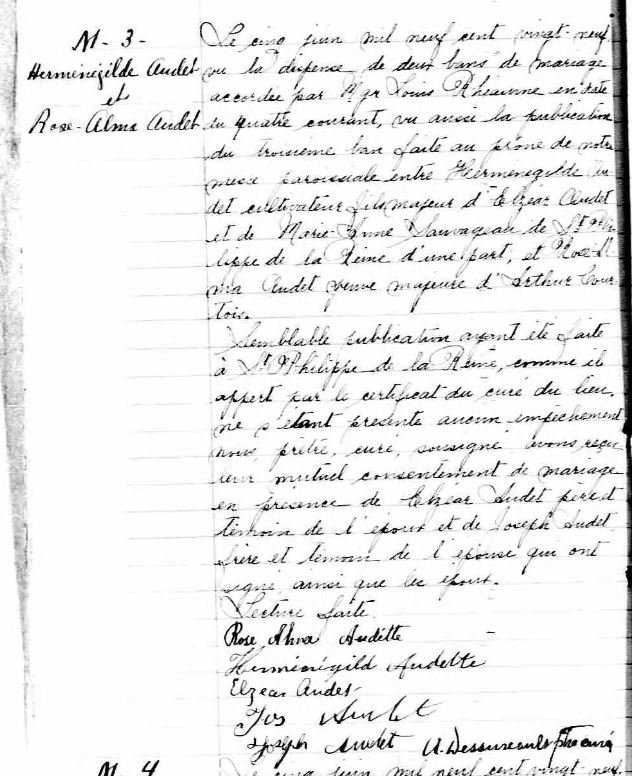 M - 3 -
Herménégilde Audet
et
Rose-Alma Audet
Le cinq juin mil neuf cent vingt-neuf,
vu la dispense de deux bans de mariage
accordée par Mgr Louis Rhéaume en date
du quatre courant, vu aussi la publication
du troisième ban faite au prône de notre
messe paroissiale entre Herménégilde Au-
det cultivateur fils majeur d'Elzéar Audet
et de Marie-Anne Sauvageau de St Phi-
lippe de la Reine d'une part, et Rose-Al
ma Audet veuve majeure d'Arthur Cour-
tois.
Semblable publication ayant été faite
à St Philippe de la Reine, comme il
appert par le certificat du curé du lieu,
ne s'étant présenté aucun empêchement
nous, prêtre, curé, soussigné avons reçu
leur mutuel consentement de mariage
en présence de Elzéar Audet père et
témoin de l'époux et de Joseph Audet
frère et témoin de l'épouse qui ont
signé ainsi que les époux.
Lecture faite.
Rose Alma Audette
Herménégild Audette
Elzear Audet
Jos Audet
Joseph Audet A. Dessureault ptre curé
M. 4
Le cinq juin mil neuf cent vingt-neuf